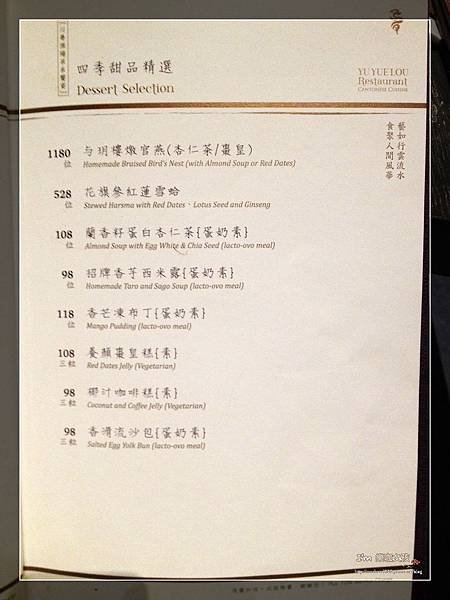 四季甜品精選
Dessert Selection
YU YUE LOU
Restaurant
CANTONESE CUISINE
藝如行雲流水
食聚人間風華
1180 与玥樓燉官燕(杏仁茶/棗皇)
位 Homemade Braised Bird's Nest (with Almond Soup or Red Dates)
528 花旗參紅蓮雪蛤
位 Stewed Harsma with Red Dates、Lotus Seed and Ginseng
108 蘭香籽蛋白杏仁茶{蛋奶素}
位 Almond Soup with Egg White & Chia Seed (lacto-ovo meal)
98 招牌香芋西米露{蛋奶素}
位 Homemade Taro and Sago Soup (lacto-ovo meal)
118 香芒凍布丁{蛋奶素}
位 Mango Pudding (lacto-ovo meal)
108 養顏棗皇糕{素}
三粒 Red Dates Jelly (Vegetarian)
98 椰汁咖啡糕{素}
三粒 Coconut and Coffee Jelly (Vegetarian)
98 香滑流沙包{蛋奶素}
三粒 Salted Egg Yolk Bun (lacto-ovo meal)
I'm